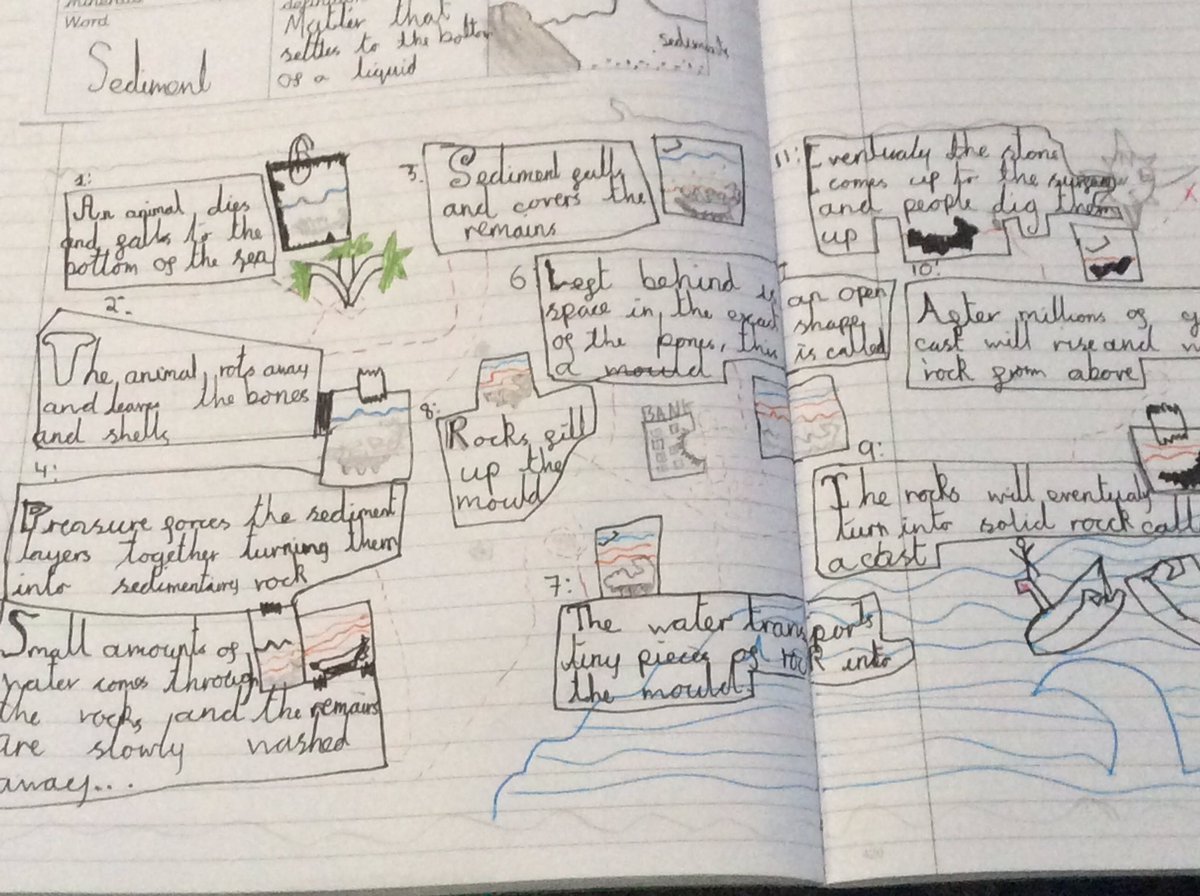 Word
Sediment
definition
Matter that
settles to the bottom
of a liquid
sediments
1:
An animal dies
and falls to the
bottom of the sea
2:
The animal rots away
and leaves the bones
and shells
3.
Sediment falls
and covers the
remains
4:
Preasure forces the sediment
layers together turning them
into sedimentary rock
Small amounts of
water comes through
the rocks and the remains
are slowly washed
away...
6
Left behind is an open
space in the exact shape
of the bones, this is called
a mould
7:
The water transports
tiny pieces of rock into
the mould.
8:
Rocks fill
up the
mould
BANK
9:
The rocks will eventualy
turn into solid rock call
a cast
10:
After millions of
cast will rise and
rock from above
11:
Eventualy the stone
comes up to the
and people dig them
up